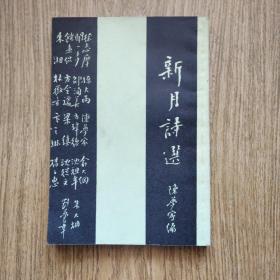 新月詩選
陳夢家編
徐志摩 孫大雨 陳夢家 俞大綱 朱大枏
聞一多 邵洵美 方瑋德 沈祖牟 劉夢葦
饒孟侃 方令孺 梁鎮 沈從文
朱湘 林徽音 卞之琳 楊子惠